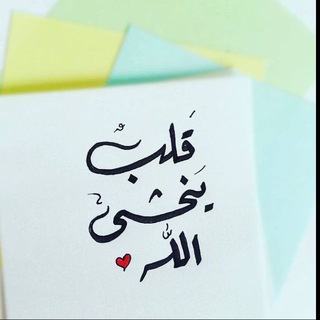 قَلب
يَخشى
اللّه